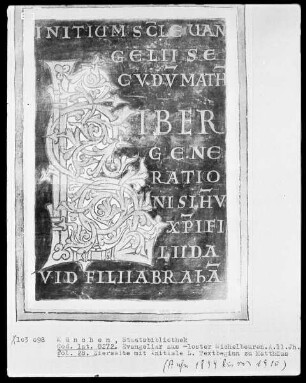 INITIUM SC̄I EUAN
GELII SE
CVDV̄ MATH̄
LIBER
GENE
RATIO
NIS IH̄V
XP̄I FI
LII DA
VID FILII ABRAHĀ
München, Staatsbibliothek
Cod. lat. 8272. Evangeliar aus Kloster Michelbeuren. A.11.Jh.
Fol. 28. Zierseite mit Initiale L. Textbeginn zu Matthäus